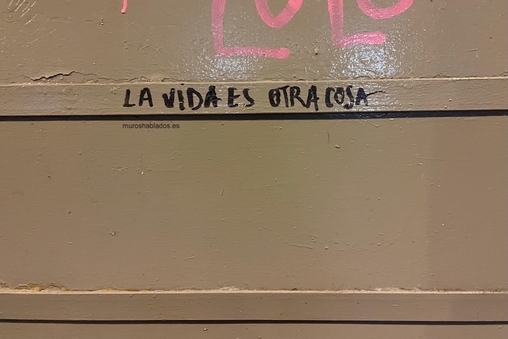 LA VIDA ES OTRA COSA
muroshablados.es